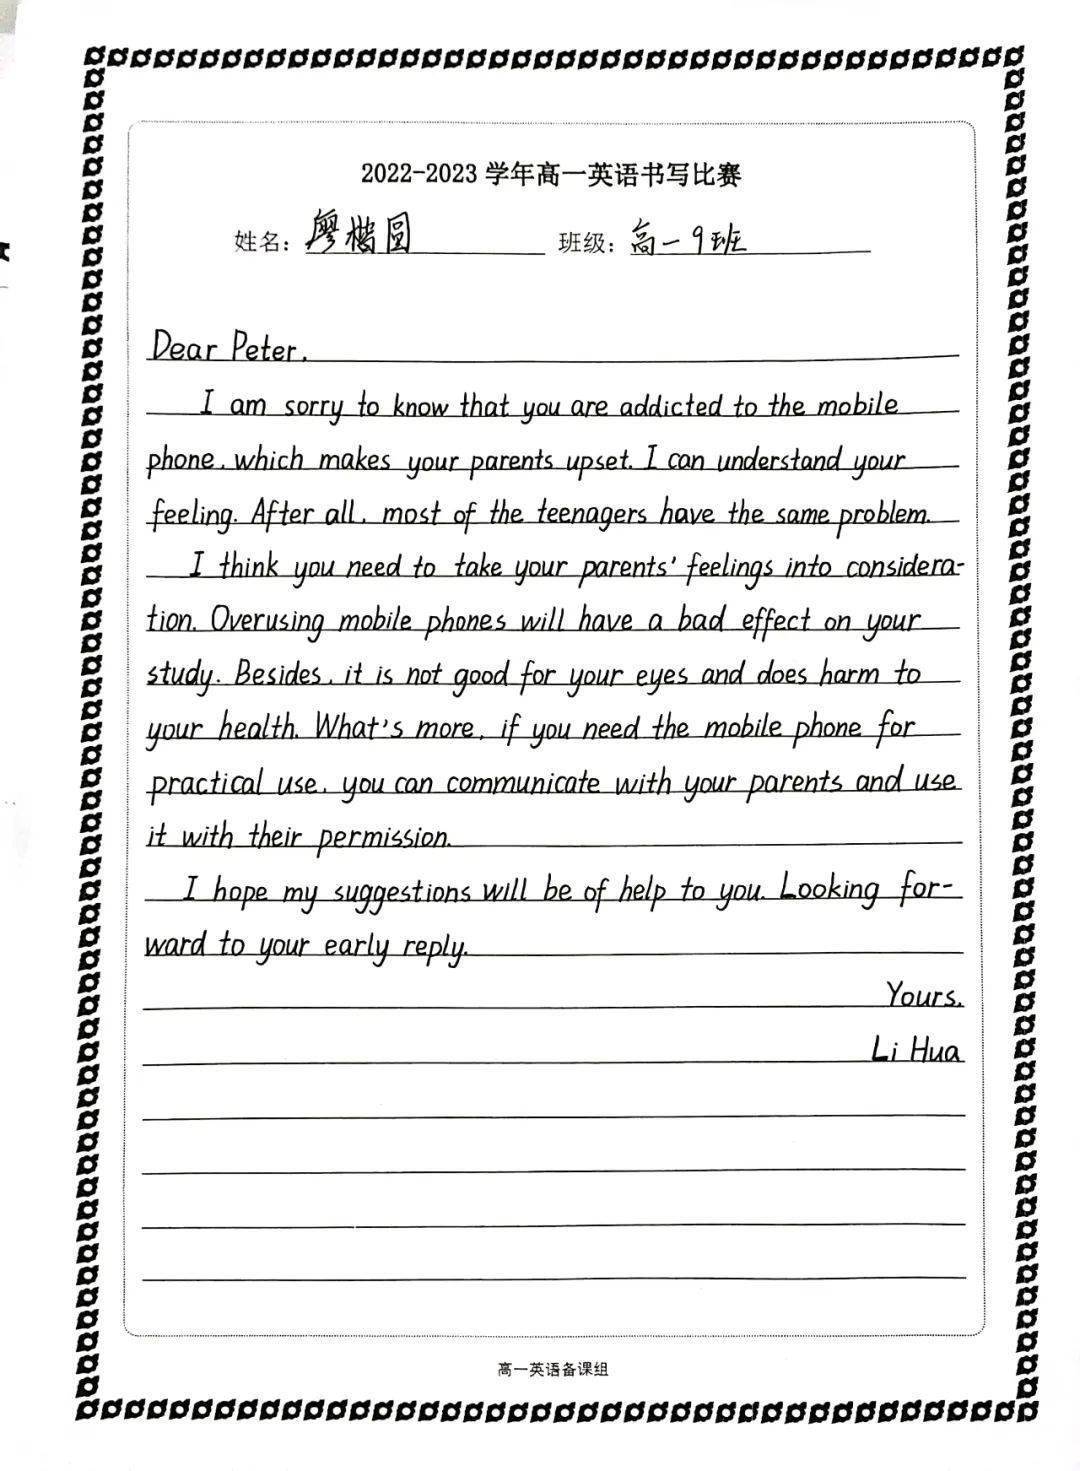 2022-2023 学年高一英语书写比赛
姓名: 廖楷圆 班级: 高一9班
Dear Peter,
I am sorry to know that you are addicted to the mobile
phone, which makes your parents upset. I can understand your
feeling. After all, most of the teenagers have the same problem.
I think you need to take your parents' feelings into considera-
tion. Overusing mobile phones will have a bad effect on your
study. Besides, it is not good for your eyes and does harm to
your health. What's more, if you need the mobile phone for
practical use, you can communicate with your parents and use
it with their permission.
I hope my suggestions will be of help to you. Looking for-
ward to your early reply.
Yours,
Li Hua
高一英语备课组